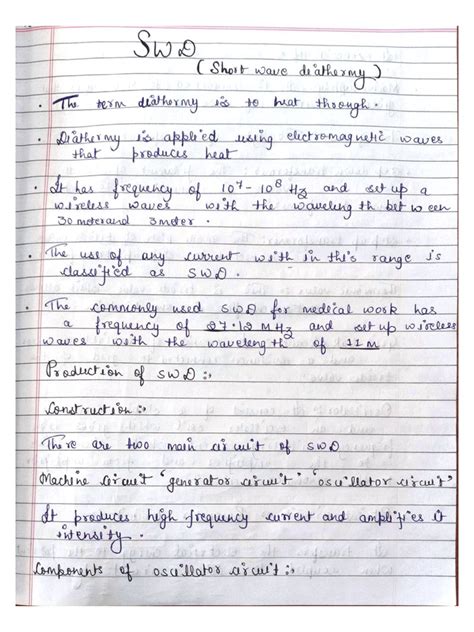 SWD
(Short wave diathermy)
• The term diathermy is to heat through.
• Diathermy is applied using electromagnetic waves
that produces heat
• It has frequency of 10⁷- 10⁸ Hz and set up a
wireless waves with the wavelength between
30 meter and 3 meter.
• The use of any current with in this range is
classified as SWD.
• The commonly used SWD for medical work has
a frequency of 27.12 MHz and set up wireless
waves with the wavelength of 11 M
Production of SWD :-
Construction :-
There are two main circuit of SWD
Machine circuit 'generator circuit' 'oscillator circuit'
It produces high frequency current and amplifies it
intensity.
Components of oscillator circuit :-